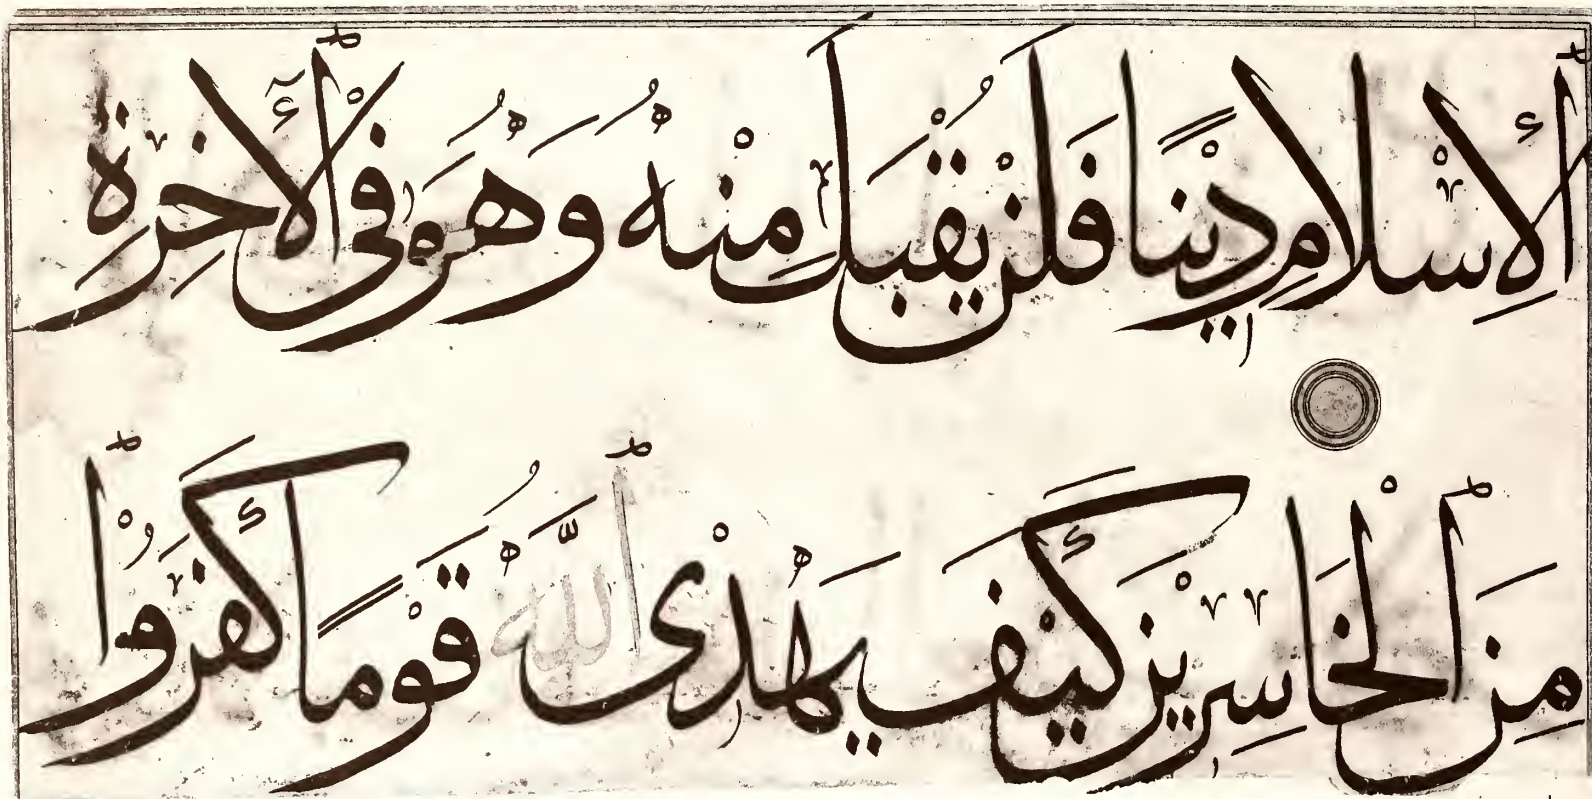 ٱلْإِسْلَامِ دِينًا فَلَنْ يُقْبَلَ مِنْهُ وَهُوَ فِي ٱلْأٓخِرَةِ
مِنَ ٱلْخَاسِرِينَ كَيْفَ يَهْدِى ٱللَّهُ قَوْمًا كَفَرُوٱ